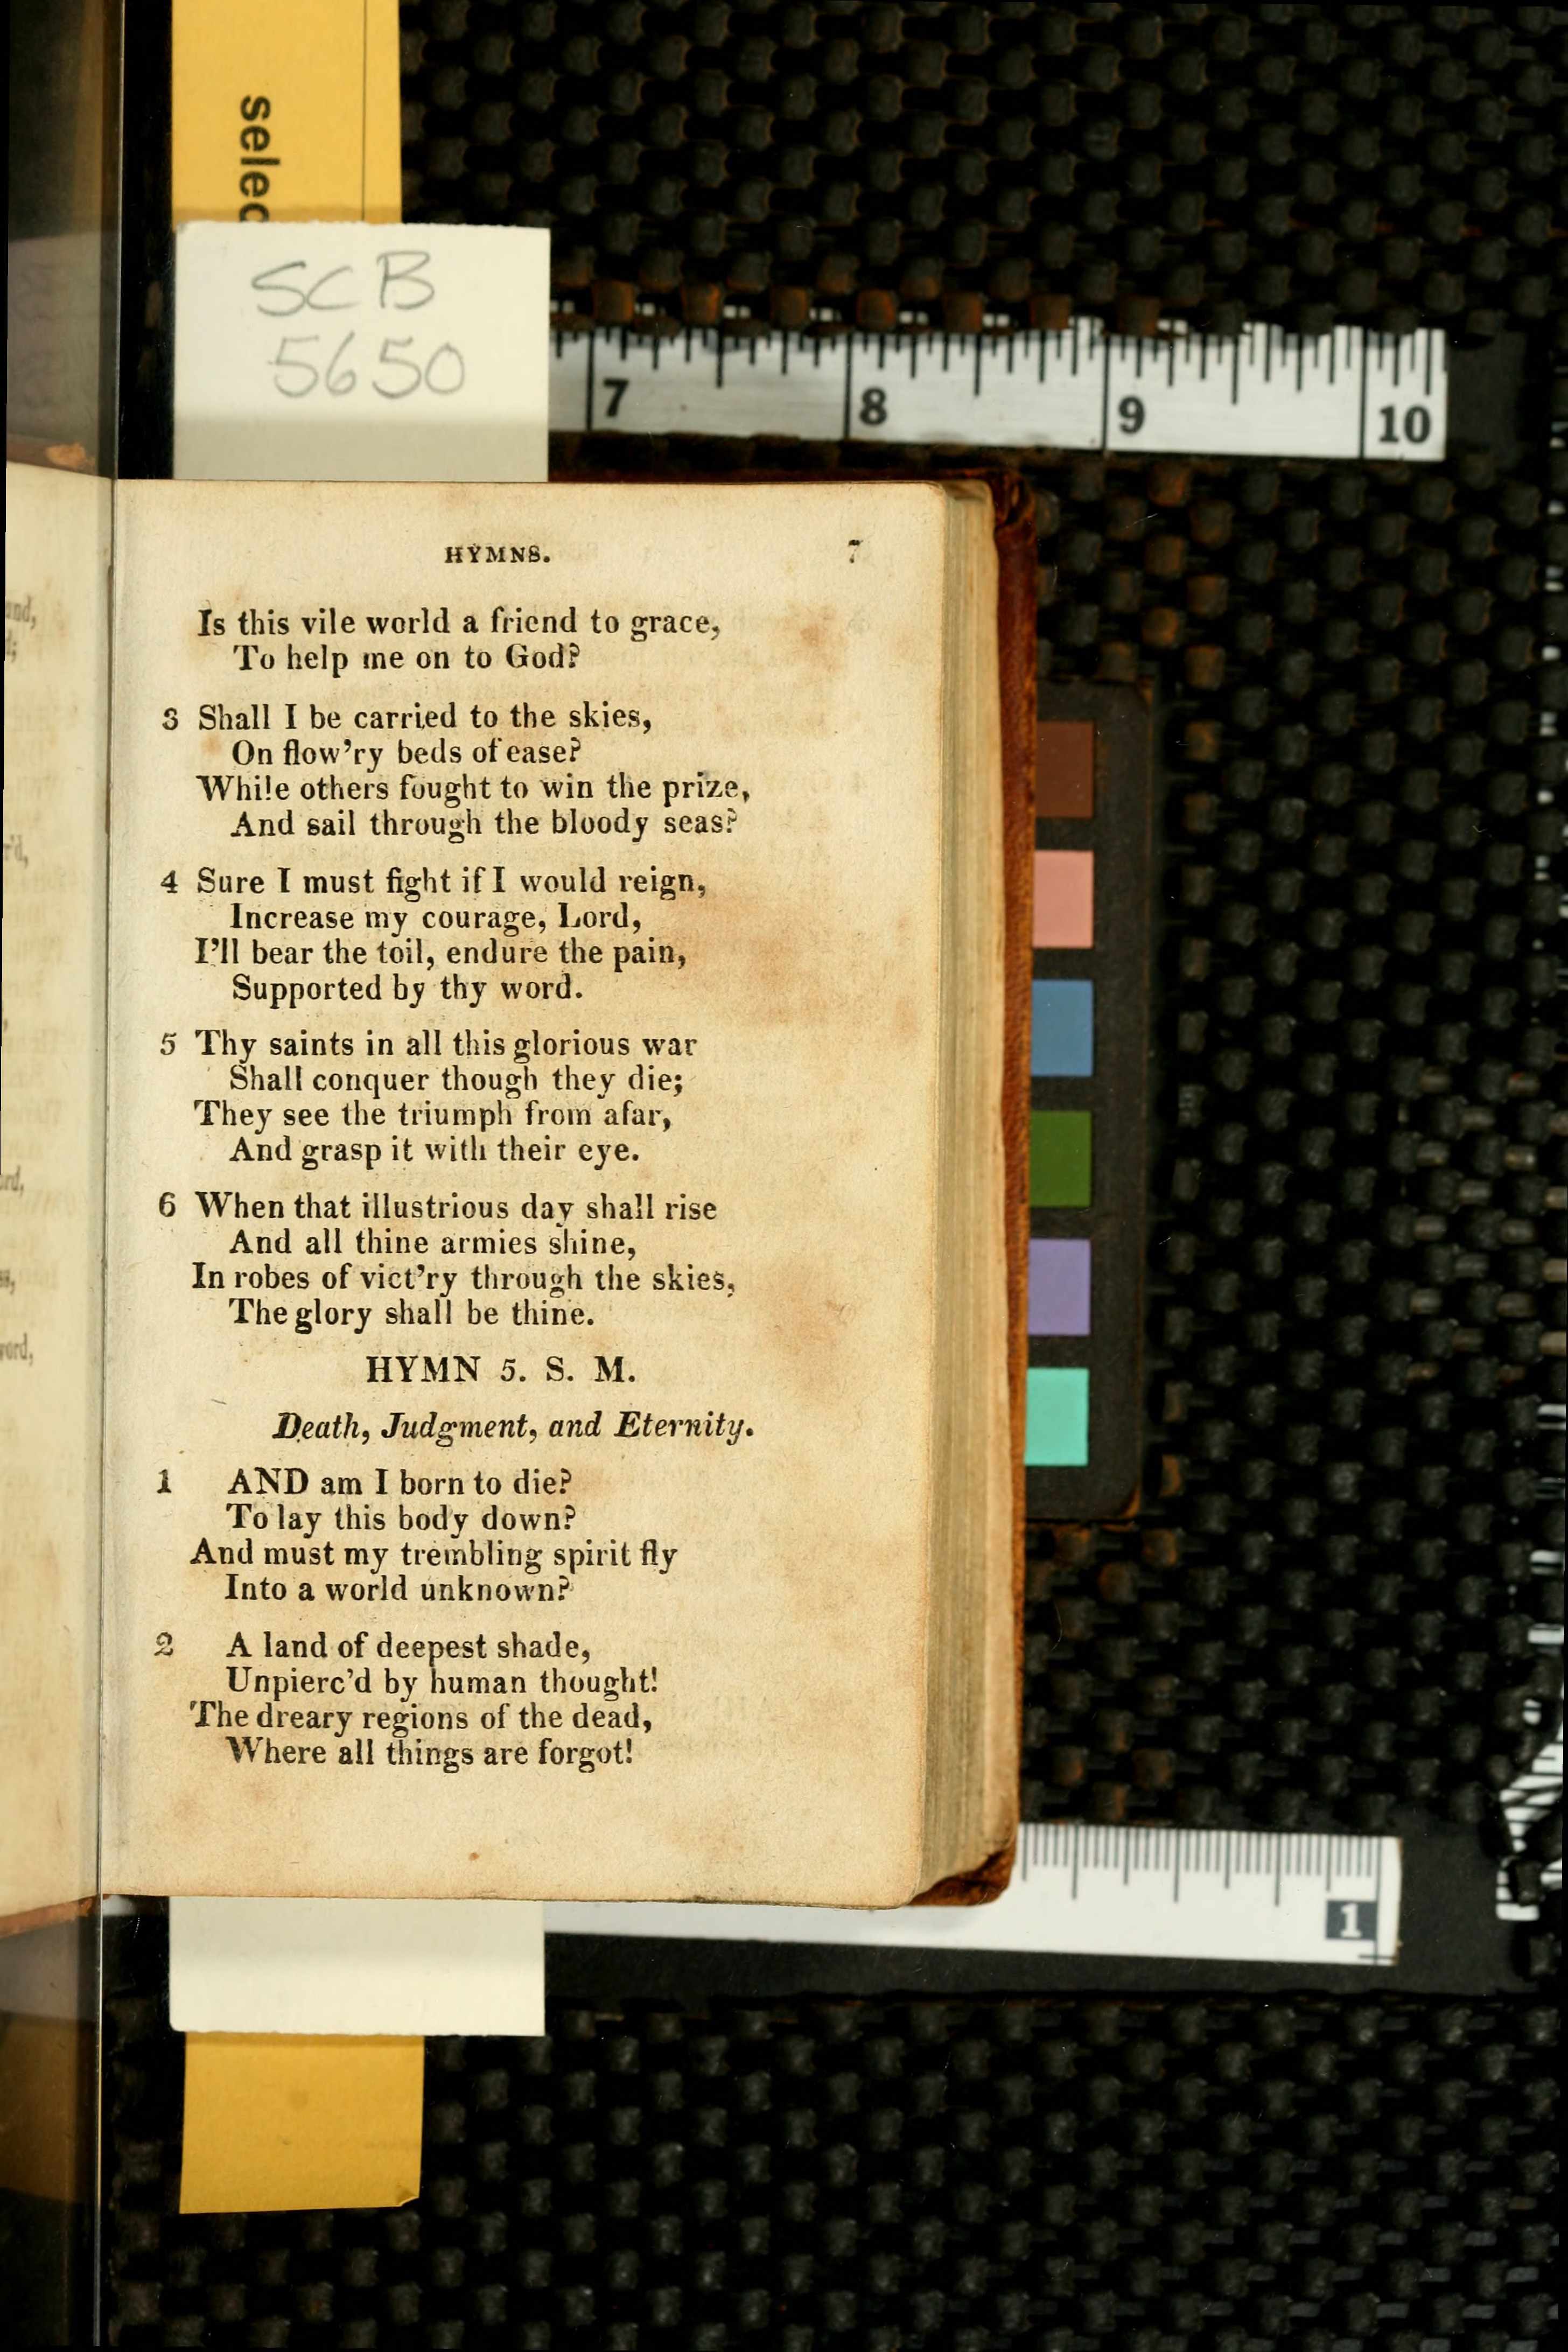 selec
SCB
5650
7 8 9 10
HYMNS. 7
Is this vile world a friend to grace,
To help me on to God?
3 Shall I be carried to the skies,
On flow'ry beds of ease?
While others fought to win the prize,
And sail through the bloody seas?
4 Sure I must fight if I would reign,
Increase my courage, Lord,
I'll bear the toil, endure the pain,
Supported by thy word.
5 Thy saints in all this glorious war
Shall conquer though they die;
They see the triumph from afar,
And grasp it with their eye.
6 When that illustrious day shall rise
And all thine armies shine,
In robes of vict'ry through the skies,
The glory shall be thine.
HYMN 5. S. M.
Death, Judgment, and Eternity.
1 AND am I born to die?
To lay this body down?
And must my trembling spirit fly
Into a world unknown?
2 A land of deepest shade,
Unpierc'd by human thought!
The dreary regions of the dead,
Where all things are forgot!
1